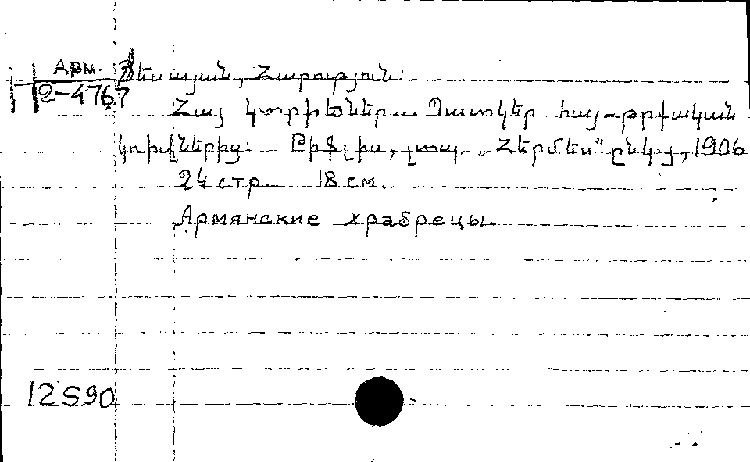 Арм.
2-4767
Տեսայան, Հարություն.
Հայ կտրիճներ... Պատկեր հայ-թրքական
կռիվներից. Թիֆլիս, տպ. „Հերմես“ ընկ., 1906
24 стр. 18 см.
Армянские храбрецы.
12590